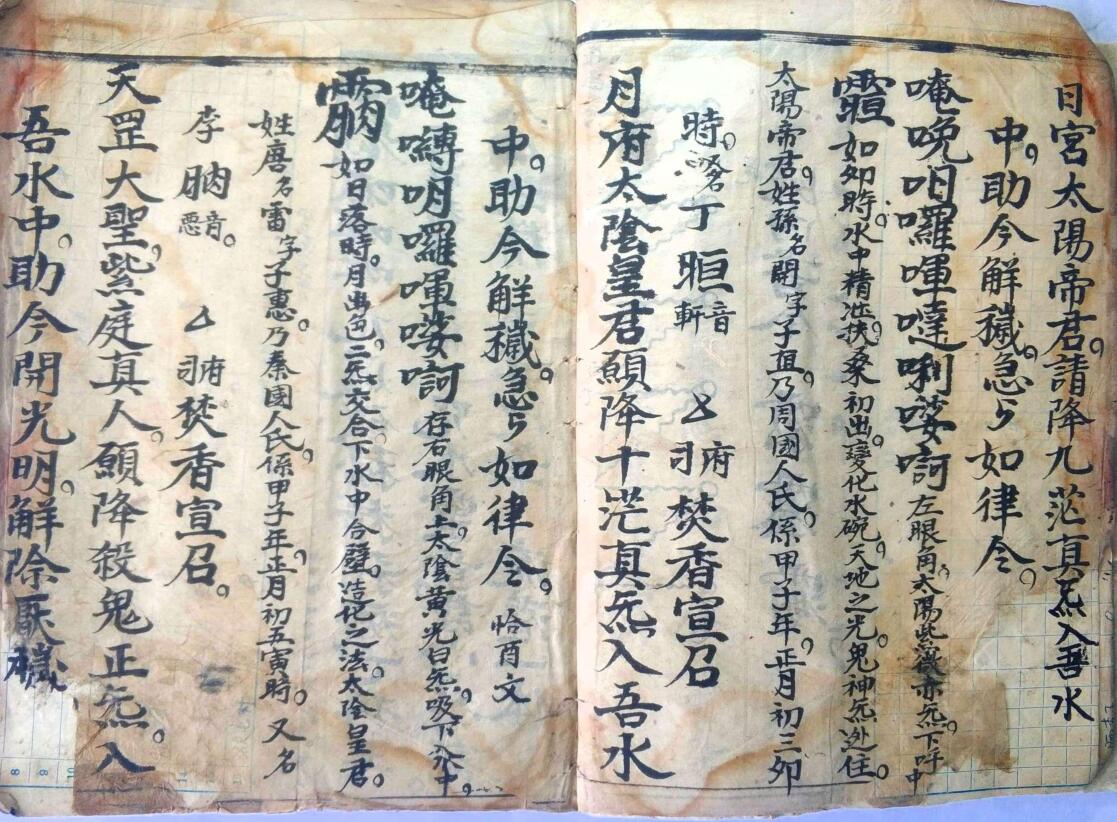 日宮太陽帝君。請降九茫真炁入吾水
中。助今解穢。急々如律令。
唵晚呬囉唓噠唎娑啊 左眼角。太陽紫微赤炁。下呼中
如卯時。水中精准扶桑初出。變化水碗。天地之光。鬼神炁迯住。
太陽帝君。姓孫名開字子抯。乃周國人氏。係甲子年。正月初三卯
時。丁晅音軒 府司焚香宣召
月府太陰皇君願降十茫真炁入吾水
中。助今解穢。急々如律令。 恰酉文
唵囀明囉唓娑啊 存右眼角上。太陰黃光白炁。吸下水中。
如日落時。月出色。二炁交合。下水中合璧。造化之法。太陰皇君。
姓唐名雷字子惠。乃秦國人氏。係甲子年。正月初五寅時。又名
李肭音惡。 府司焚香宣召。
天罡大聖。紫庭真人。願降殺鬼正炁。入
吾水中。助今開光明。解除厭穢